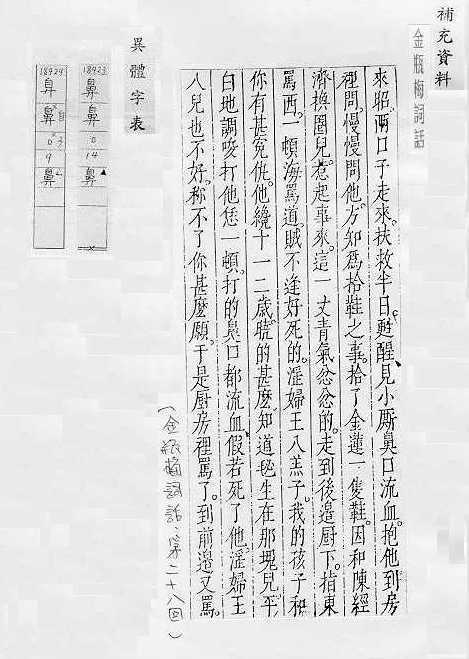 補充資料
金瓶梅詞話
來昭。兩口子走來。扶救半日。甦醒。見小厮鼻口流血。抱他到房
裡問。慢慢問他。方知為拾鞋之事。拾了金蓮一隻鞋。因和陳經
濟換圈兒。惹起事來。這一丈青氣忿忿的。走到後邉厨下。指東
罵西。一頓海罵道。賊不逢好死的。淫婦王八羔子。我的孩子和
你有甚冤仇。他纔十一二歲。曉的甚麽。知道毴生在那塊兒。平
白地調唆打他恁一頓。打的鼻口都流血。假若死了他。淫婦王
八兒也不好。稱不了你甚麽願。于是厨房裡罵了。到前邉又罵。
(金瓶梅詞話.第二十八回)
異體字表
18923
鼻
0
14
鼻
18924
鼻
0
9
鼻